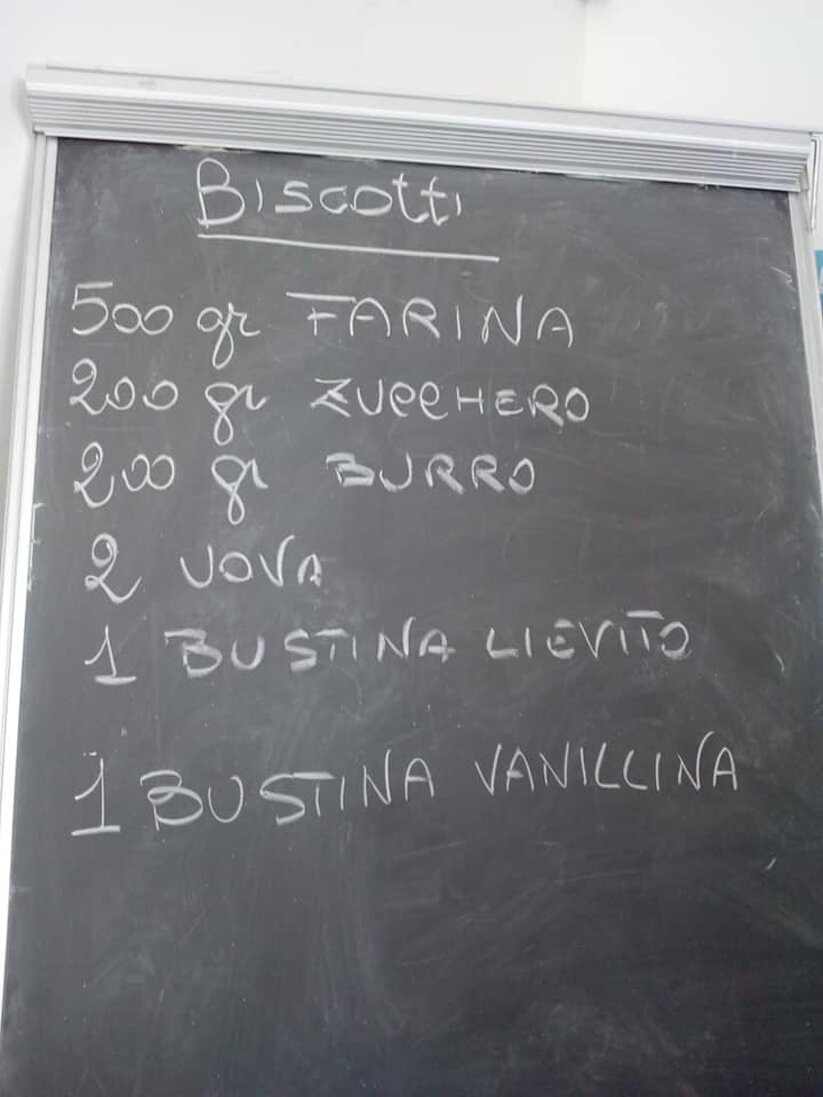 Biscotti
500 gr FARINA
200 gr ZUCCHERO
200 gr BURRO
2 UOVA
1 BUSTINA LIEVITO
1 BUSTINA VANILLINA